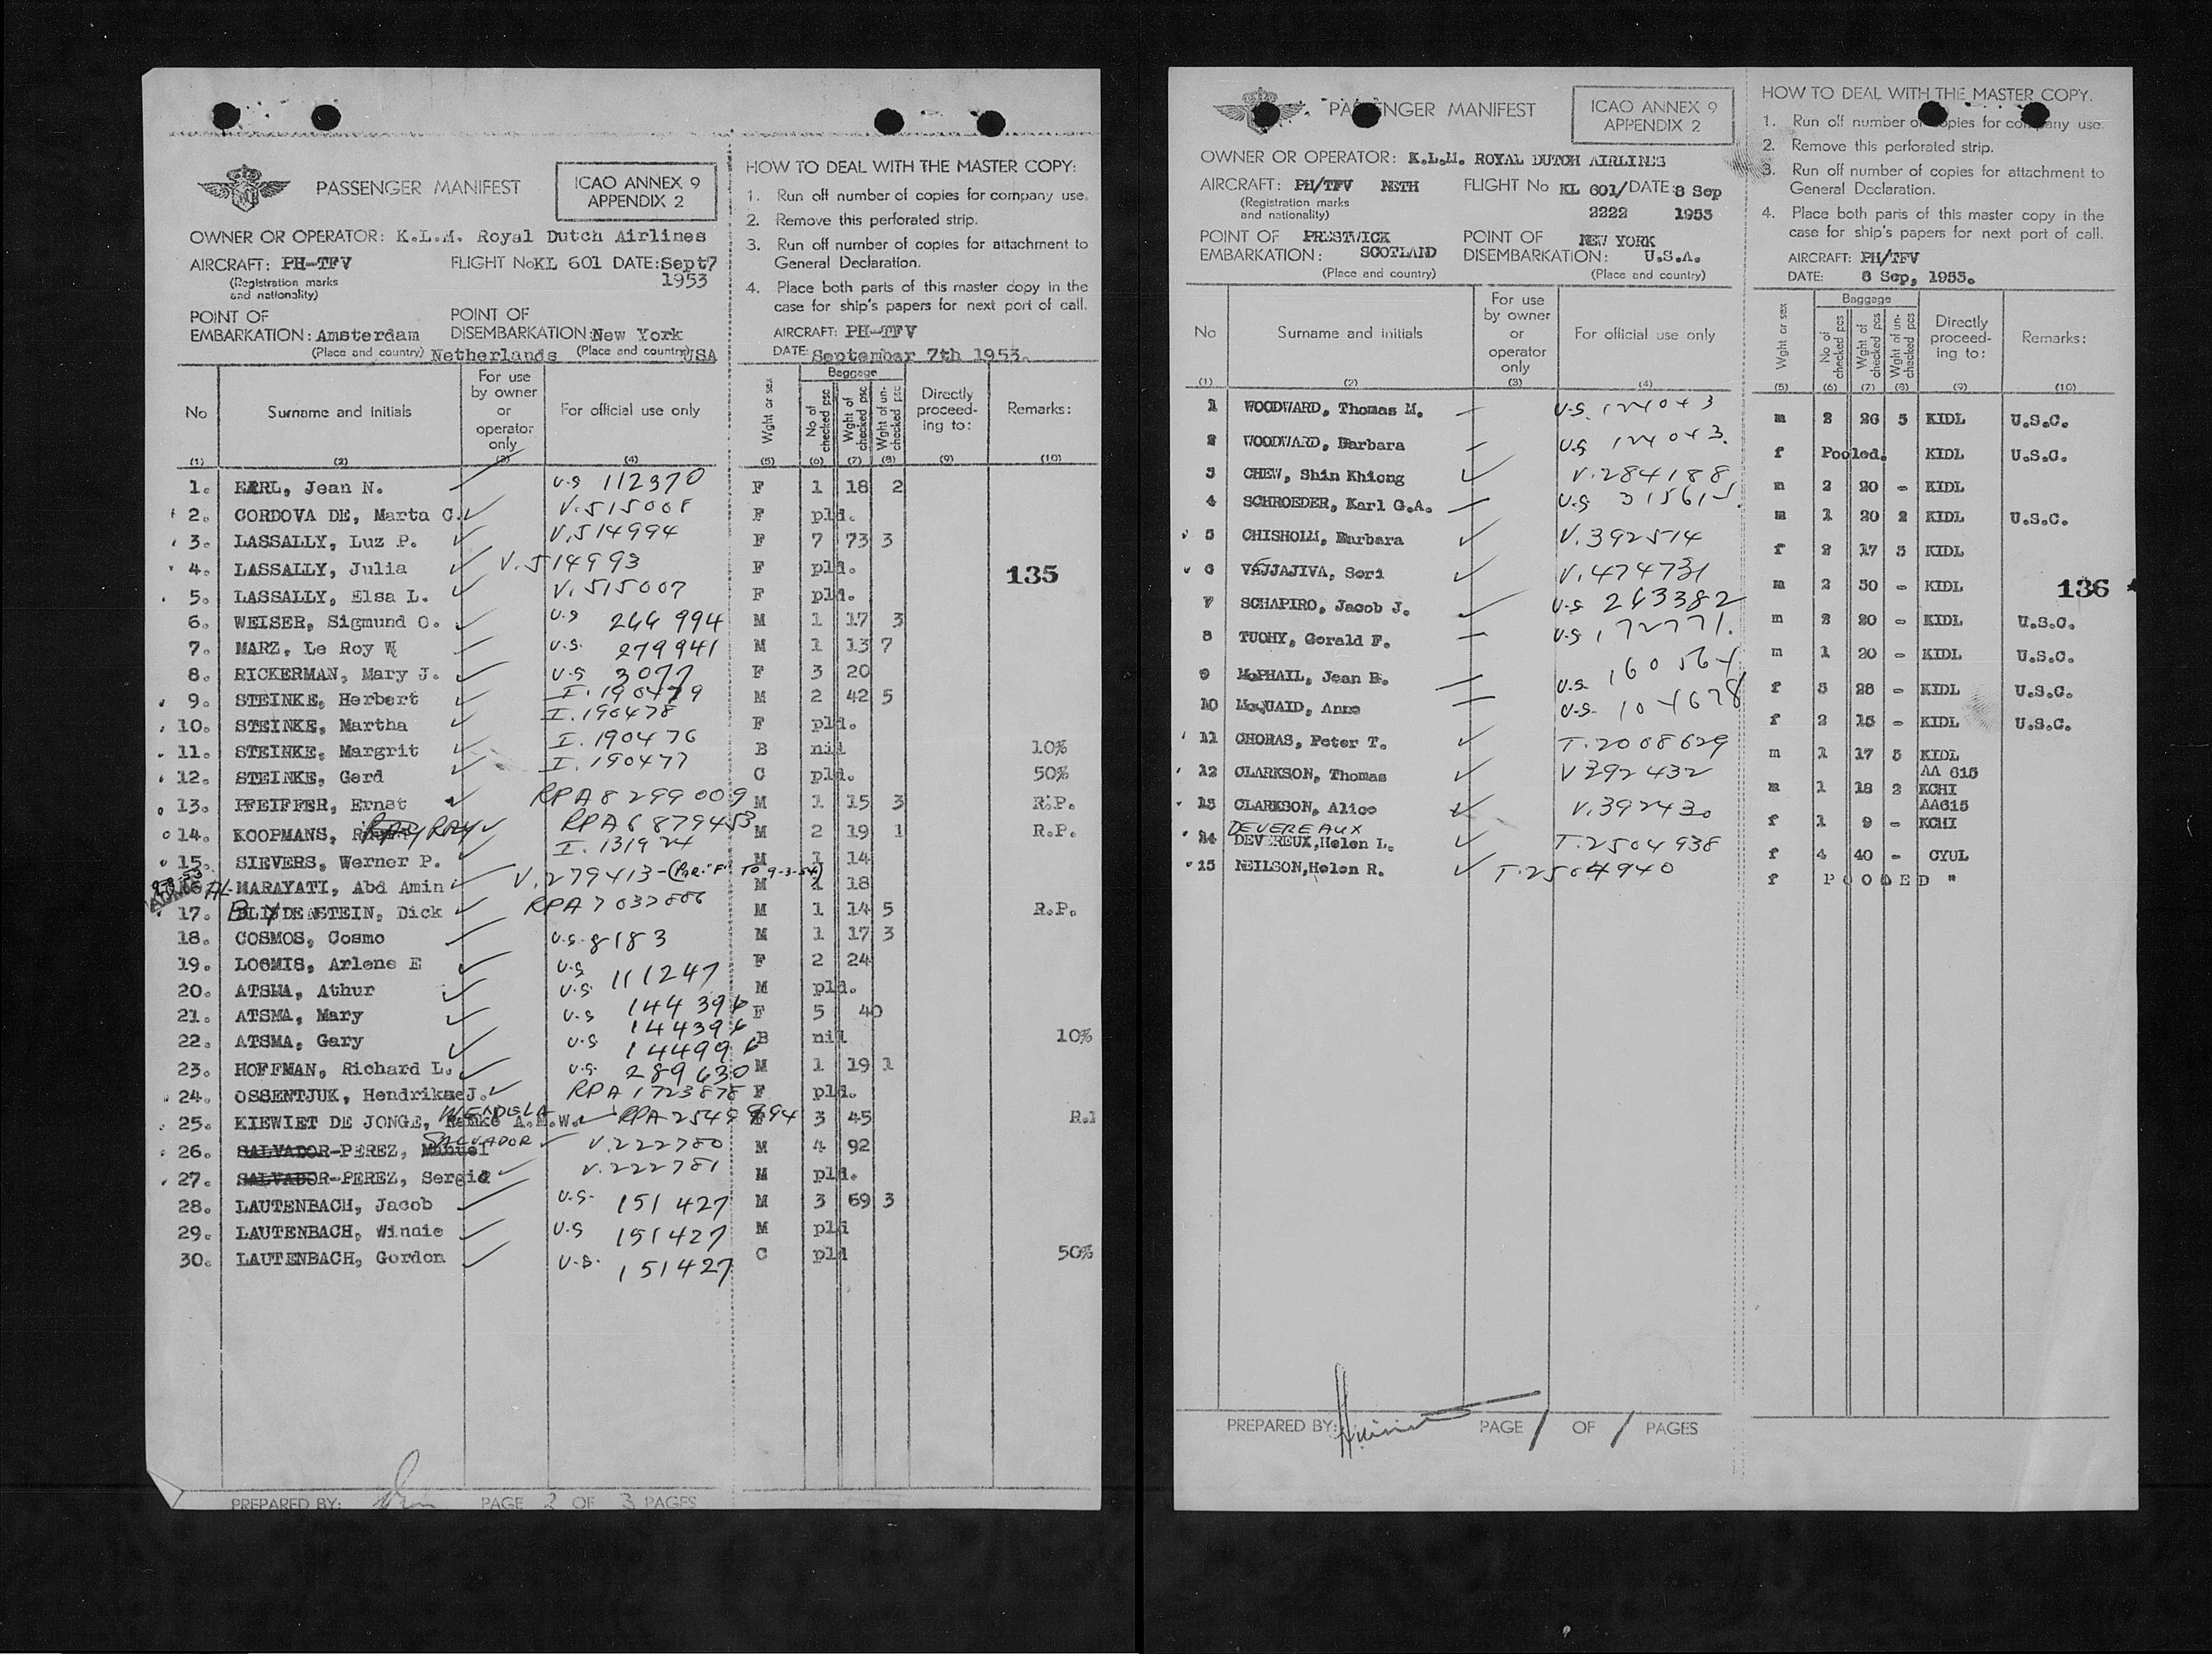 PASSENGER MANIFEST
ICAO ANNEX 9
APPENDIX 2
OWNER OR OPERATOR: K.L.M. Royal Dutch Airlines
AIRCRAFT: PH-TFV FLIGHT No KL 601 DATE: Sept 7
(Registration marks 1953
and nationality)
POINT OF POINT OF
EMBARKATION: Amsterdam DISEMBARKATION: New York
(Place and country) Netherlands (Place and country) USA
HOW TO DEAL WITH THE MASTER COPY:
1. Run off number of copies for company use.
2. Remove this perforated strip.
3. Run off number of copies for attachment to
General Declaration.
4. Place both parts of this master copy in the
case for ship's papers for next port of call.
AIRCRAFT: PH-TFV
DATE: September 7th 1953.
No Surname and Initials For use by owner or operator only For official use only Wght or sex Baggage No of checked psc Wght of checked psc Wght of un-checked psc Directly proceed-ing to: Remarks:
(1) (2) (3) (4) (5) (6) (7) (8) (9) (10)
1. EARL, Jean N. U.S 112370 F 1 18 2
2. CORDOVA DE, Marta C. V.515008 F pld.
3. LASSALLY, Luz P. V.514994 F 7 73 3
4. LASSALLY, Julia V.514993 F pld.
135
5. LASSALLY, Elsa L. V.515007 F pld.
6. WEISER, Sigmund O. U.S 266994 M 1 17 3
7. MARZ, Le Roy W U.S. 279941 M 1 13 7
8. RICKERMAN, Mary J. U.S 3077 F 3 20
9. STEINKE, Herbert I.190479 M 2 42 5
10. STEINKE, Martha I.190478 F pld.
11. STEINKE, Margrit I.190476 B nil 10%
12. STEINKE, Gerd I.190477 C pld. 50%
13. PFEIFFER, Ernst RPA 8299009 M 1 15 3 R.P.
14. KOOPMANS, RAY RPA 6879453 M 2 19 1 R.P.
15. SIEVERS, Werner P. I.131924 M 1 14
16. AL-MARAYATI, Abd Amin V.279413-(P.R."F" TO 9-3-54) M 1 18
17. BLYDENSTEIN, Dick RPA 7032866 M 1 14 5 R.P.
18. COSMOS, Cosmo U.S. 8183 M 1 17 3
19. LOOMIS, Arlene E U.S 111247 F 2 24
20. ATSMA, Athur U.S. 144396 M pld.
21. ATSMA, Mary U.S 144396 F 5 40
22. ATSMA, Gary U.S 144996 B nil 10%
23. HOFFMAN, Richard L. U.S. 289630 M 1 19 1
24. OSSENTJUK, Hendrikae J. RPA 1723878 F pld.
25. KIEWIET DE JONGE, WENDELA A.E.W. RPA 2549894 3 45
26. SALVADOR-PEREZ, SALVADOR V.222780 M 4 92
27. SALVADOR-PEREZ, Sergio V.222781 M pld.
28. LAUTENBACH, Jacob U.S. 151427 M 3 69 3
29. LAUTENBACH, Winnie U.S 151427 M pld
30. LAUTENBACH, Gordon U.S. 151427 C pld 50%
PREPARED BY: PAGE 2 OF 3 PAGES
PASSENGER MANIFEST
ICAO ANNEX 9
APPENDIX 2
OWNER OR OPERATOR: K.L.M. ROYAL DUTCH AIRLINES
AIRCRAFT: PH/TFV NETH FLIGHT No KL 601/ DATE: 8 Sep
(Registration marks 2222 1953
and nationality)
POINT OF PRESTWICK POINT OF NEW YORK
EMBARKATION: SCOTLAND DISEMBARKATION: U.S.A.
(Place and country) (Place and country)
HOW TO DEAL WITH THE MASTER COPY.
1. Run off number of copies for company use.
2. Remove this perforated strip.
3. Run off number of copies for attachment to
General Declaration.
4. Place both parts of this master copy in the
case for ship's papers for next port of call.
AIRCRAFT: PH/TFV
DATE: 8 Sep, 1953.
No Surname and Initials For use by owner or operator only For official use only Wght or sex Baggage No of checked pcs Wght of checked pcs Wght of un-checked pcs Directly proceed-ing to: Remarks:
(1) (2) (3) (4) (5) (6) (7) (8) (9) (10)
1 WOODWARD, Thomas M. U.S. 124043 m 2 26 5 KIDL U.S.C.
2 WOODWARD, Barbara U.S 124043. f Pooled. KIDL U.S.C.
3 CHEW, Shin Khiong V.284188 m 2 20 - KIDL
4 SCHROEDER, Karl G.A. U.S 315615. m 1 20 2 KIDL U.S.C.
5 CHISHOLM, Barbara V.392514 f 2 17 3 KIDL
6 VAJJAJIVA, Sori V.474731 m 2 30 - KIDL
136
7 SCHAPIRO, Jacob J. U.S 263382 m 2 20 - KIDL U.S.C.
8 TUOHY, Gerald F. U.S 172771. m 1 20 - KIDL U.S.C.
9 McPHAIL, Jean B. U.S. 160564 f 3 28 - KIDL U.S.C.
10 McQUAID, Anne U.S. 104678 f 2 15 - KIDL U.S.C.
11 CHORAS, Peter T. T.2008629 m 1 17 3 KIDL
12 CLARKSON, Thomas V 392432 m 1 18 2 AA 615 KCHI
13 CLARKSON, Alice V.392430 f 1 9 - AA615 KCHI
DEVEREAUX
14 DEVEREUX, Helen L. T.2504938 f 4 40 - CYUL
15 NEILSON, Helen R. T.2504940 f POOLED "
PREPARED BY: PAGE 1 OF 1 PAGES